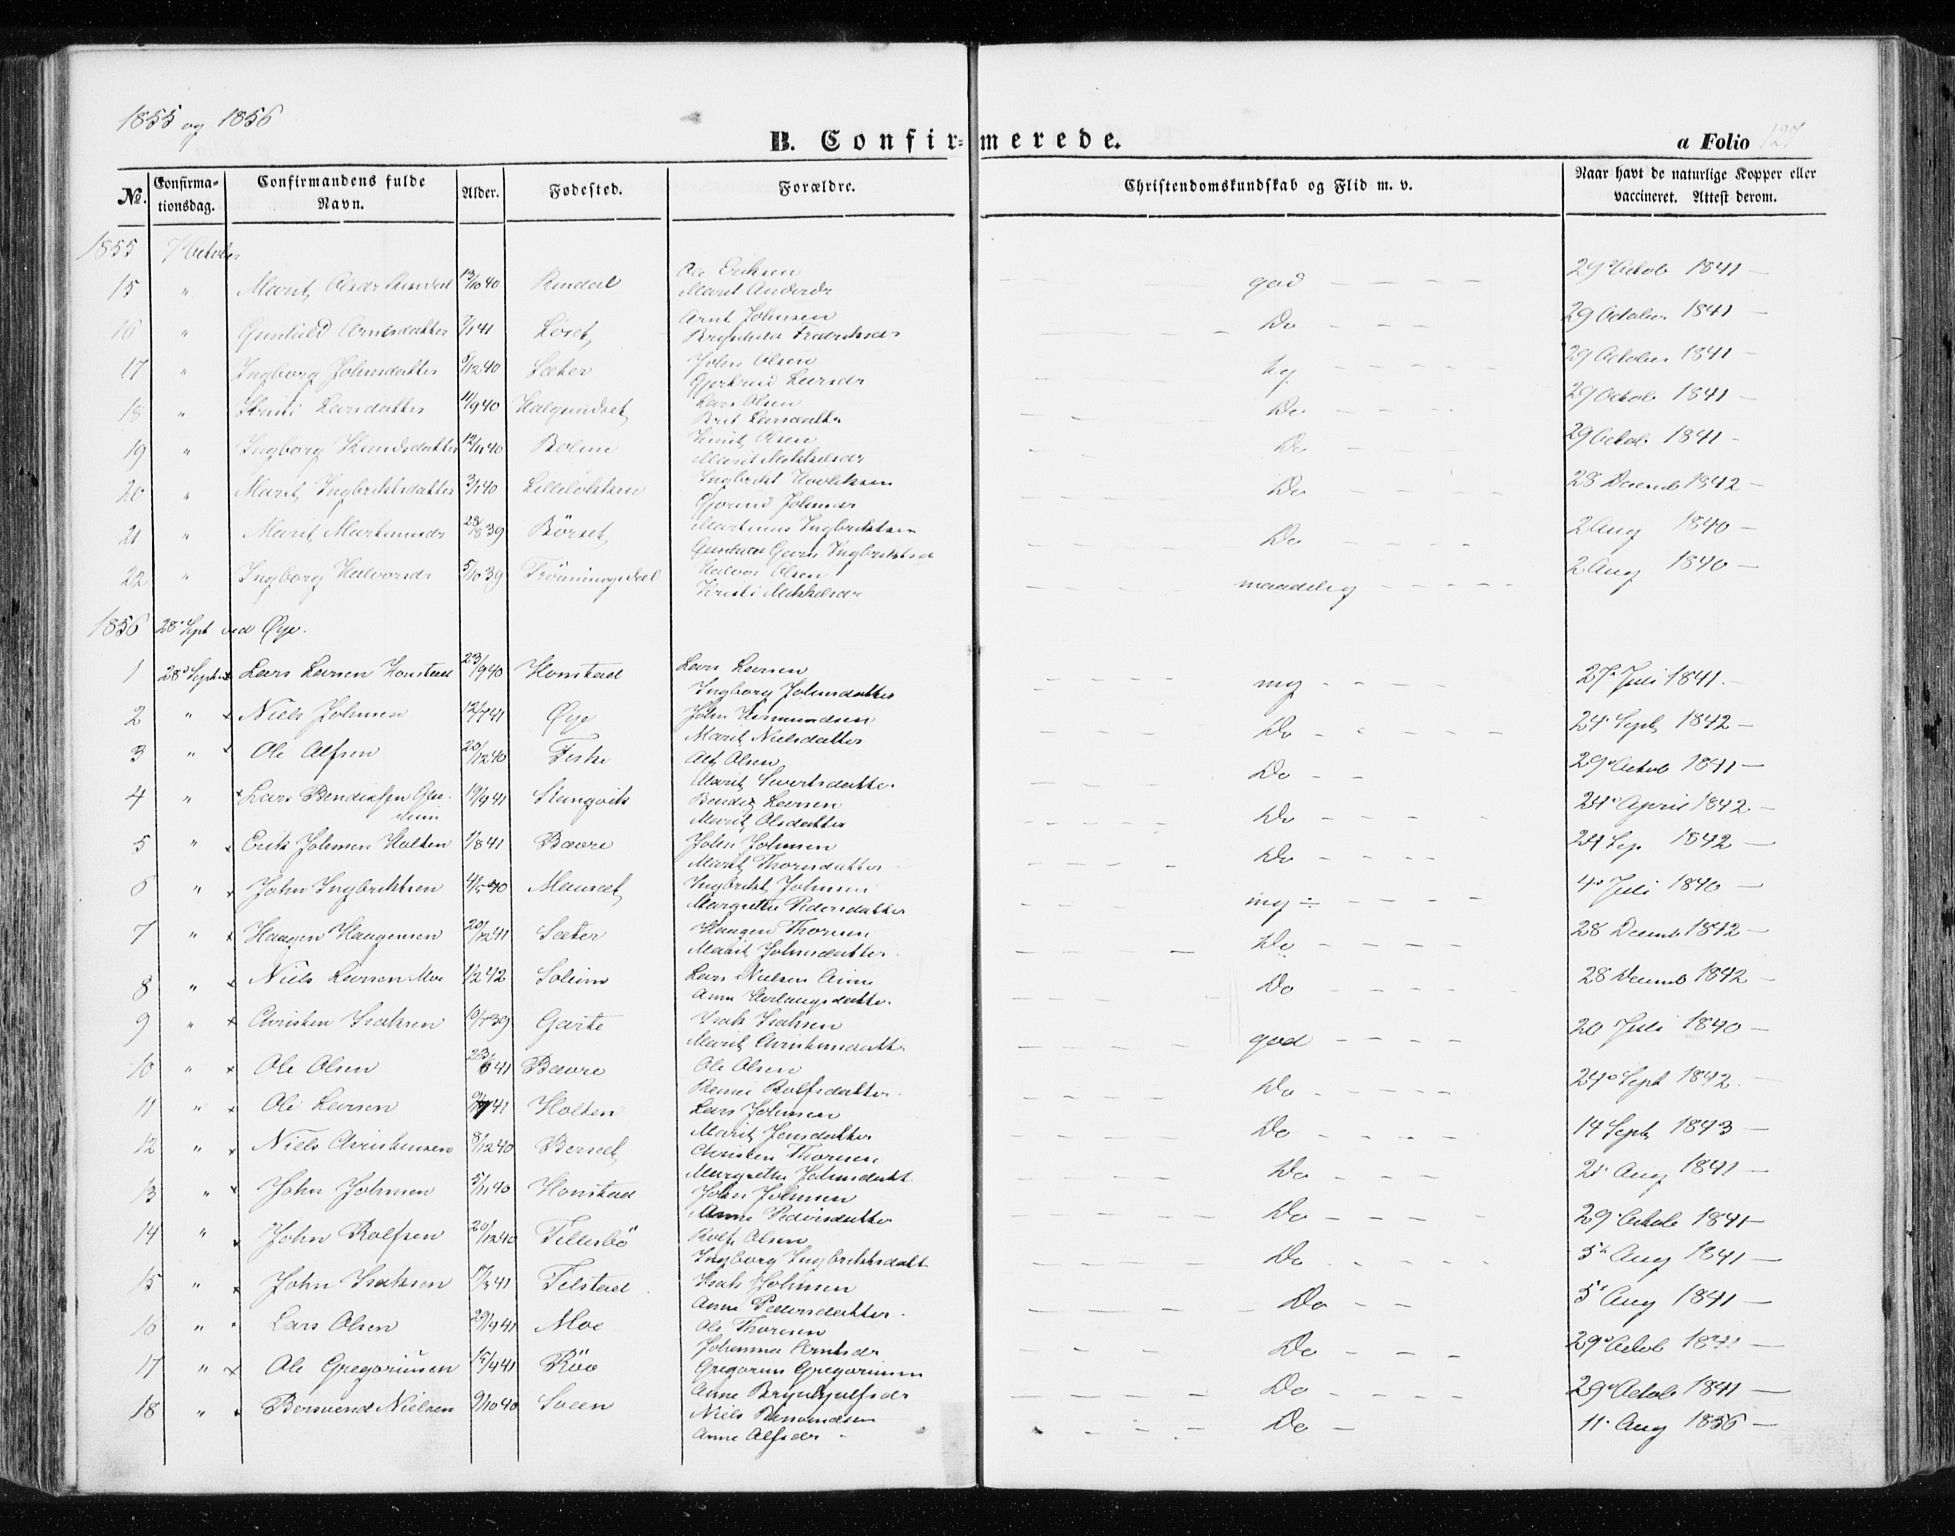 1855 og 1856
B. Confirmerede.
a Folio 127
No. Confirmationsdag. Confirmandens fulde Navn. Alder. Fødested. Forældre. Christendomskundskab og Flid m. v. Naar havt de naturlige Kopper eller vaccineret. Attest derom.
1855 7 October
15 " Marit Olsdr 13/10 40 Rindal Ole Eriksen god 29 Octob 1841
Marit Andersdr
16 " Gunhild Arnesdatter 7/1 41 Løset Arnt Johnsen Do 29 October 1841
Fredriksdr
17 " Ingborg Johnsdatter 9/12 40 Sæter John Olsen 29 October 1841
Gjertrud Larsdr
18 " Larsdatter 11/9 40 Halgundset Lars Olsen Do 29 Octob 1841
Brit Larsdatter
19 " Ingborg Knudsdatter 12/11 40 Bolme Knut Olsen Do 29 Octob 1841
Marit Mikkelsdr
20 " Marit Ingbriktsdatter 3/1 40 Ingbrikt Do 28 Decemb 1842
Johnsdr
21 " Marit Martinusdr 28/8 39 Børset Martinus Ingbriktsen Do 2 Aug 1840
22 " Ingborg Halvorsdr 5/10 39 Halvor Olsen maadelig 2 Aug 1840
Kristi Mikkelsdr
1856 28' Sept ved Øye.
1 28' Sept x Lars Larsen Honstad 23/9 40 Honstad Lars Larsen mg 27' Juli 1841
Ingborg Johnsdatter
2 " x Niels Johnsen 12/7 41 Øye John Do 24' Septb 1842
Marit Nielsdatter
3 " x Ole Alfsen 20/12 40 Feske Alf Olsen Do 29' Octob 1841
Marit Sivertsdatter
4 " x Lars Bendixsen 19/9 41 Stangvik Bendix Larsen Do 24' April 1842
Marit Olsdatter
5 " x Erik Johnsen Holten 1/8 41 Bævre John Johnsen Do 24 Sep 1842
Marit Thoresdatter
6 " x John Ingbriktsen 4/5 40 Mauset Ingbrikt Johnsen mg ÷ 4' Juli 1840
Margrethe Pedersdatter
7 " x Haagen Haagensen 20/12 41 Sæter Haagen Thoresen Do 28 Decemb 1842
Marit Johnsdatter
8 " x Niels Larsen Moe 1/2 42 Solem Lars Nielsen Do 28 Decemb 1842
Anne
9 " x Christen Isaksen 10/7 39 Garte Isak Isaksen god 20 Juli 1840
Marit Christensdatt.
10 " x Ole Olsen 23/6 41 Bævre Ole Olsen Do 24' Sept 1842
Rolfsdatter
11 " x Ole Larsen 41 Holten Lars Johnsen Do 14 Septb 1843
Marit Jensdatter
12 " x Niels Christensen 8/12 40 Berset Christen Thoresen Do 2' Aug 1841
Margrethe Johnsdatt
13 " x John Johnsen 5/11 40 Honstad John Johnsen Do 29' Octob 1841
Anne Pedersdatter
14 " x John Rolfsen 20/12 40 Tellesbø Rolf Olsen Do 5' Aug 1841
Ingborg Ingbriktsdatt
15 " x John Isaksen 17/3 41 Telstad Isak Johnsen Do 5' Aug 1841
Anne Pedersdatter
16 " Lars Olsen 29/9 41 Moe Ole Thoresen Do 29' Octob 1841
Johanna Arntsdr
17 " x Ole Gregoriusen 15/4 41 Röv Gregorius Gregoriusen Do 29' Octob 1841
Anne Brynhjulfsdr
18 " x Bersvend Nielsen 9/10 40 Sveen Niels Bersvendsen Do 11' Aug 1856
Anne Alfsdr